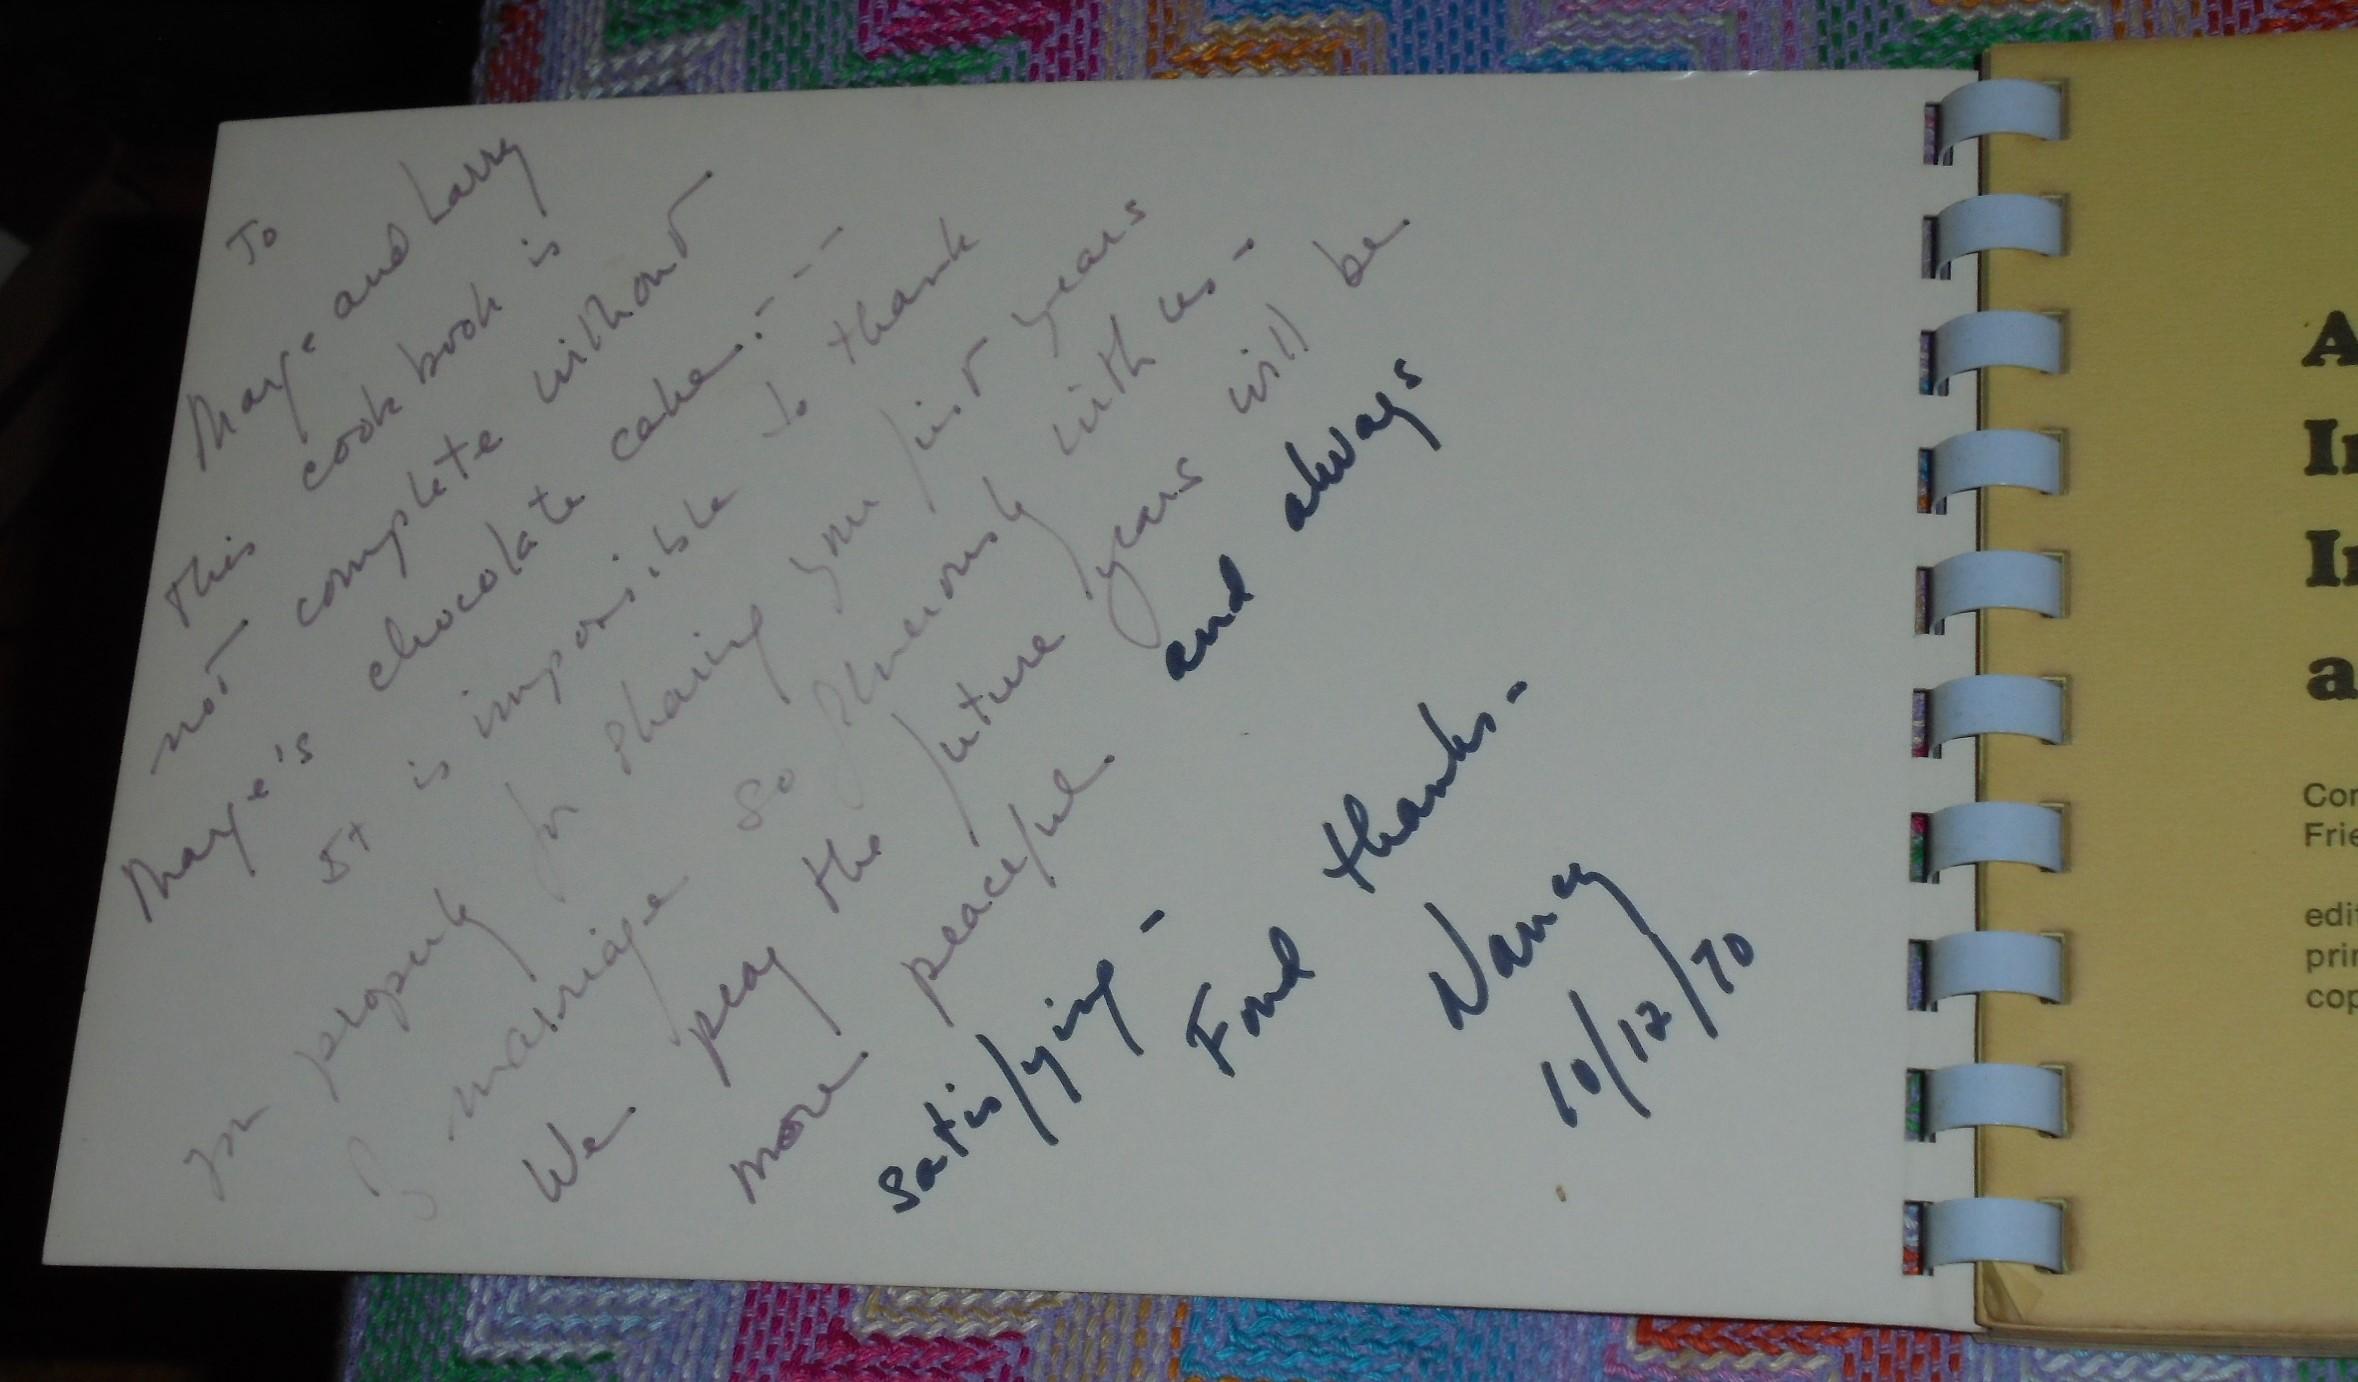 To
Marge and Larry
This cook book is
not complete without
Marge's chocolate cake.---
It is impossible to thank
you properly for sharing your first years
of marriage so generously with us-
We pray the future years will be
more peaceful and always
satisfying-
Fond thanks-
Nancy
10/12/70
A
a
Frie
edit
cop